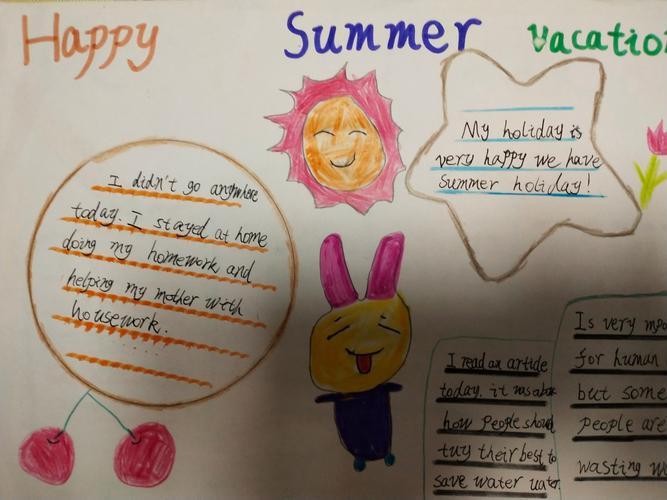 Happy Summer Vacation
I didn't go anywhere
today. I stayed at home
doing my homework and
helping my mother with
housework.
My holiday is
very happy we have
Summer holiday!
I read an article
today. it was about
how people should
tuy their best to
save water water
Is very
for human
but some
people are
wasting